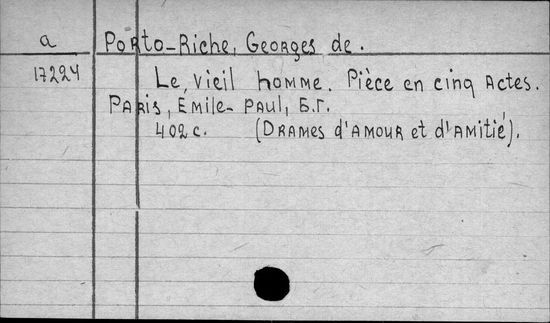 a Porto-Riche, Georges de.
17224 Le, vieil homme. Pièce en cinq actes.
Paris, Emile-Paul, Б.г.
402 с. (Drames d'amour et d'amitié).